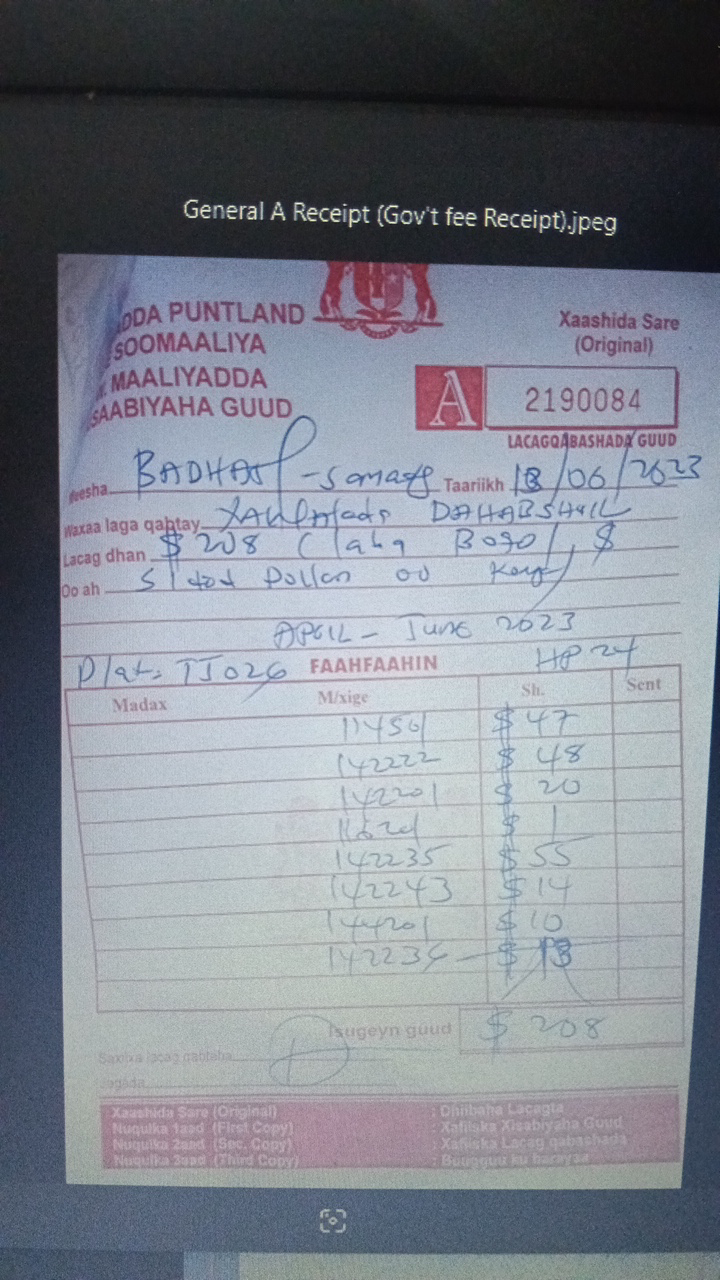 General A Receipt (Gov't fee Receipt).jpeg
DDA PUNTLAND
SOOMAALIYA
MAALIYADDA
SAABIYAHA GUUD
Xaashida Sare
(Original)
A 2190084
LACAGQABASHADA GUUD
Meesha BADHAN - Sanaag Taariikh 13/06/2023
Waxaa laga qabtay DAHABSHIIL
Lacag dhan $ 208 (Laba Boqol, $
Oo ah Sidod Dollar oo
APRIL - JUNE 2023
Plat. TJ026 FAAHFAAHIN HP 24
Madax M/xige Sh. Sent
$ 47
142222 $ 48
142201 $ 20
$ 1
142235 $ 55
142243 $ 14
144201 $ 10
142234 $ 13
Isugeyn guud $ 208
Saxiixa lacag qabtaha
Xaashida Sare (Original) : Dhiibaha Lacagta
Nuqulka 1aad (First Copy) : Xafiiska Xisabiyaha Guud
Nuqulka 2aad (Sec. Copy) : Xafiiska Lacag qabashada
Nuqulka 3aad (Third Copy) : Buugguu ku harayaa